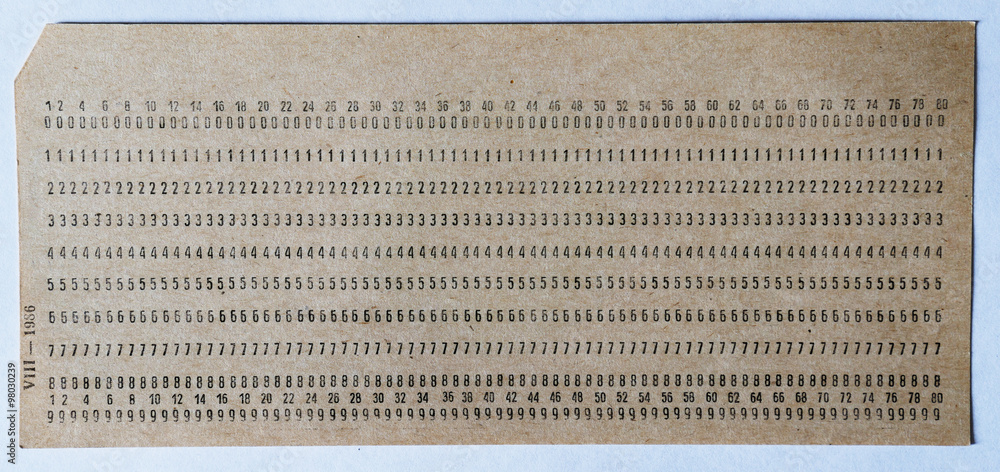 1 2 4 6 8 10 12 14 16 18 20 22 24 26 28 30 32 34 36 38 40 42 44 46 48 50 52 54 56 58 60 62 64 66 68 70 72 74 76 78 80
00000000000000000000000000000000000000000000000000000000000000000000000000000000
11111111111111111111111111111111111111111111111111111111111111111111111111111111
22222222222222222222222222222222222222222222222222222222222222222222222222222222
33333333333333333333333333333333333333333333333333333333333333333333333333333333
44444444444444444444444444444444444444444444444444444444444444444444444444444444
55555555555555555555555555555555555555555555555555555555555555555555555555555555
66666666666666666666666666666666666666666666666666666666666666666666666666666666
77777777777777777777777777777777777777777777777777777777777777777777777777777777
88888888888888888888888888888888888888888888888888888888888888888888888888888888
1 2 4 6 8 10 12 14 16 18 20 22 24 26 28 30 32 34 36 38 40 42 44 46 48 50 52 54 56 58 60 62 64 66 68 70 72 74 76 78 80
99999999999999999999999999999999999999999999999999999999999999999999999999999999
VIII — 1986
Adobe Stock | #98030239